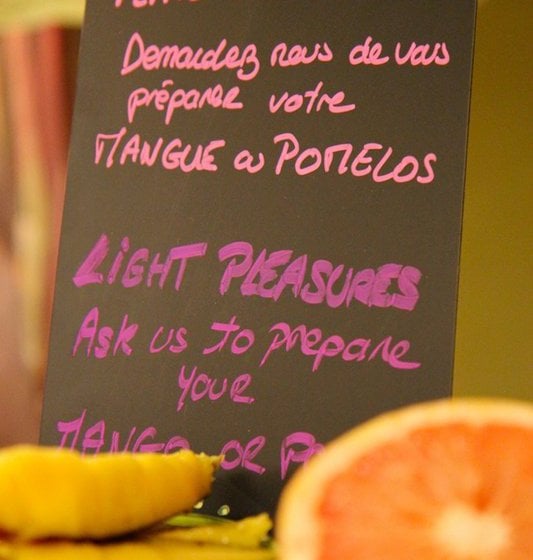 Demandez nous de vous
préparer votre
MANGUE ou POMELOS
LIGHT PLEASURES
Ask us to prepare
your
MANGO OR